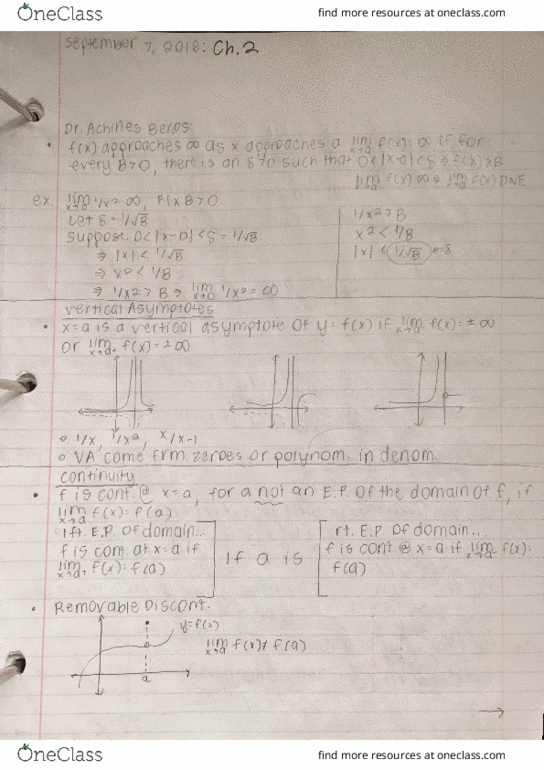 OneClass find more resources at oneclass.com
September 7, 2018: Ch.2
Dr. Achilles Beros:
• f(x) approaches ∞ as x approaches a lim x→a f(x)=∞ if for
every B>0, there is an δ>0 such that 0<|x-a|<δ ⇒ f(x)>B
lim x→a f(x)=∞ ⇒ lim x→a f(x) DNE
ex. lim x→0 1/x²=∞, Fix B>0
Let δ=1/√B
Suppose 0<|x-0|<δ=1/√B
⇒ |x|<1/√B
⇒ x²<1/B
⇒ 1/x²>B ⇒ lim x→0 1/x²=∞
1/x²>B
x²<1/B
|x|<1/√B ←δ
Vertical Asymptotes
• x=a is a vertical asymptote of y=f(x) if lim f(x)=±∞
or lim f(x)=±∞
o 1/x, 1/x², x/x-1
o VA come frm zeroes or polynom. in denom.
Continuity
• f is cont @ x=a, for a not an E.P. of the domain of f, if
lim x→a f(x)=f(a)
lft. E.P. of domain..
f is cont. at x=a if
lim x→a⁺ f(x)=f(a)
If a is
rt. E.P. of domain..
f is cont @ x=a if lim x→a⁻ f(x)=
f(a)
• Removable Discont.
y=f(x)
lim x→a f(x)≠f(a)
a
→
OneClass find more resources at oneclass.com